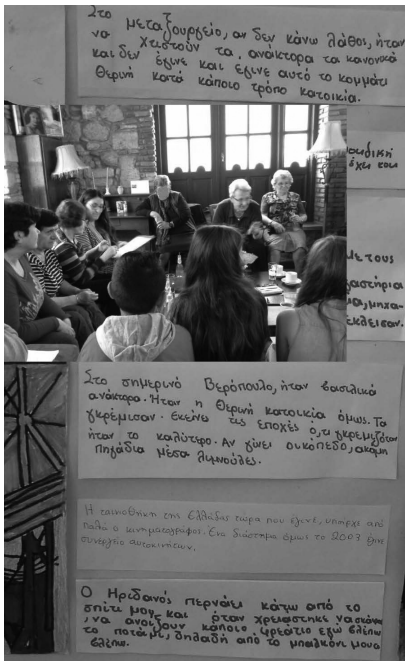 Στο μεταξουργείο, αν δεν κάνω λάθος, ήταν
να χτιστούν τα ανάκτορα τα κανονικά
και δεν έγινε και έγινε αυτό το κομμάτι
θερινή κατά κάποιο τρόπο κατοικία.
έχει του
Με τους
Στο σημερινό Βερόπουλο, ήταν βασιλικά
ανάκτορα. Ήταν η θερινή κατοικία όμως. Τα
γκρέμισαν. Εκείνες τις εποχές ό,τι γκρεμιζόταν
ήταν το καλύτερο. Αν γίνει οικόπεδο, ακόμη
πηγάδια μέσα λιμνούλες.
Η ταινιοθήκη της Ελλάδας τώρα που έγινε, υπήρχε από
παλιά ο κινηματογράφος. Ένα διάστημα όμως το 2003 έγινε
συνεργείο αυτοκινήτων.
Ο Ηριδανός περνάει κάτω από το
σπίτι μου, και όταν χρειάστηκε να σκάψω
, να ανοίξουν κάποιο φρεάτιο εγώ βλέπω
το ποτάμι, δηλαδή από το μπαλκόνι μου το
βλέπω.